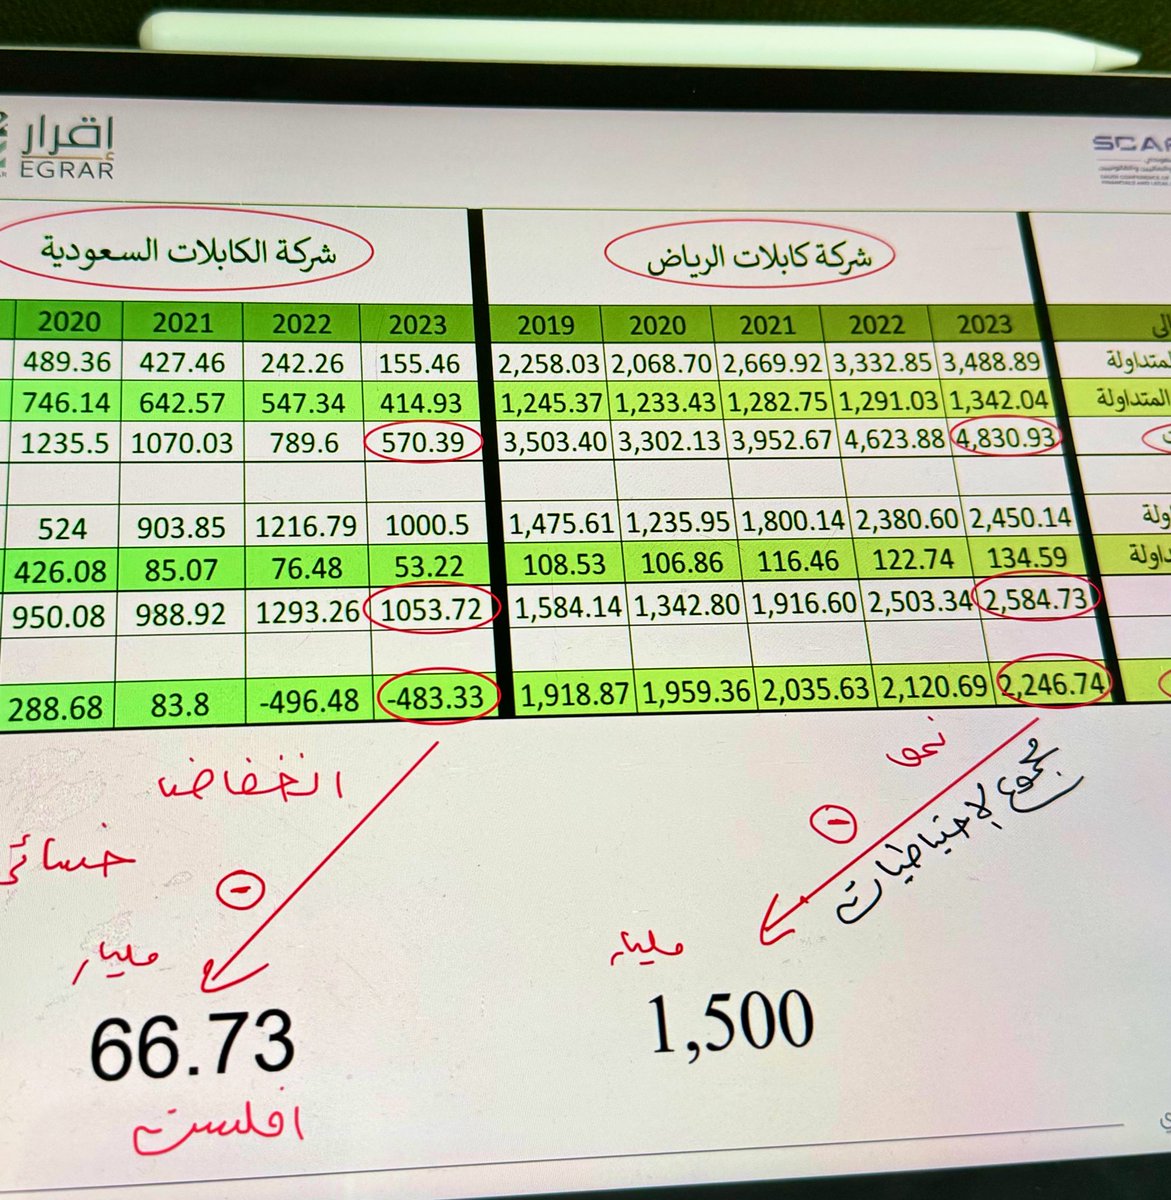 إقرار
EGRAR
شركة كابلات الرياض شركة الكابلات السعودية
2023 2022 2021 2020 2019 2023 2022 2021 2020
3,488.89 3,332.85 2,669.92 2,068.70 2,258.03 155.46 242.26 427.46 489.36
1,342.04 1,291.03 1,282.75 1,233.43 1,245.37 414.93 547.34 642.57 746.14
4,830.93 4,623.88 3,952.67 3,302.13 3,503.40 570.39 789.6 1070.03 1235.5
2,450.14 2,380.60 1,800.14 1,235.95 1,475.61 1000.5 1216.79 903.85 524
134.59 122.74 116.46 106.86 108.53 53.22 76.48 85.07 426.08
2,584.73 2,503.34 1,916.60 1,342.80 1,584.14 1053.72 1293.26 988.92 950.08
2,246.74 2,120.69 2,035.63 1,959.36 1,918.87 -483.33 -496.48 83.8 288.68
نمو
مجموع الاحتياطيات
-
مليار
1,500
انخفاض
خسائر
-
مليار
66.73
افلست